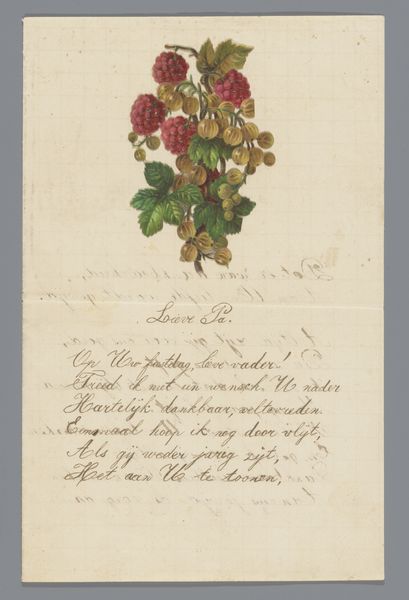 Lieve Pa.
Op Uw feestdag, lieve vader!
Treed ik met un wensch U nader
Hartelijk dankbaar, weltevreden.
Eenmaal hoop ik nog door vlijt,
Als gij weder jareg zijt,
Het aan U te toonen,